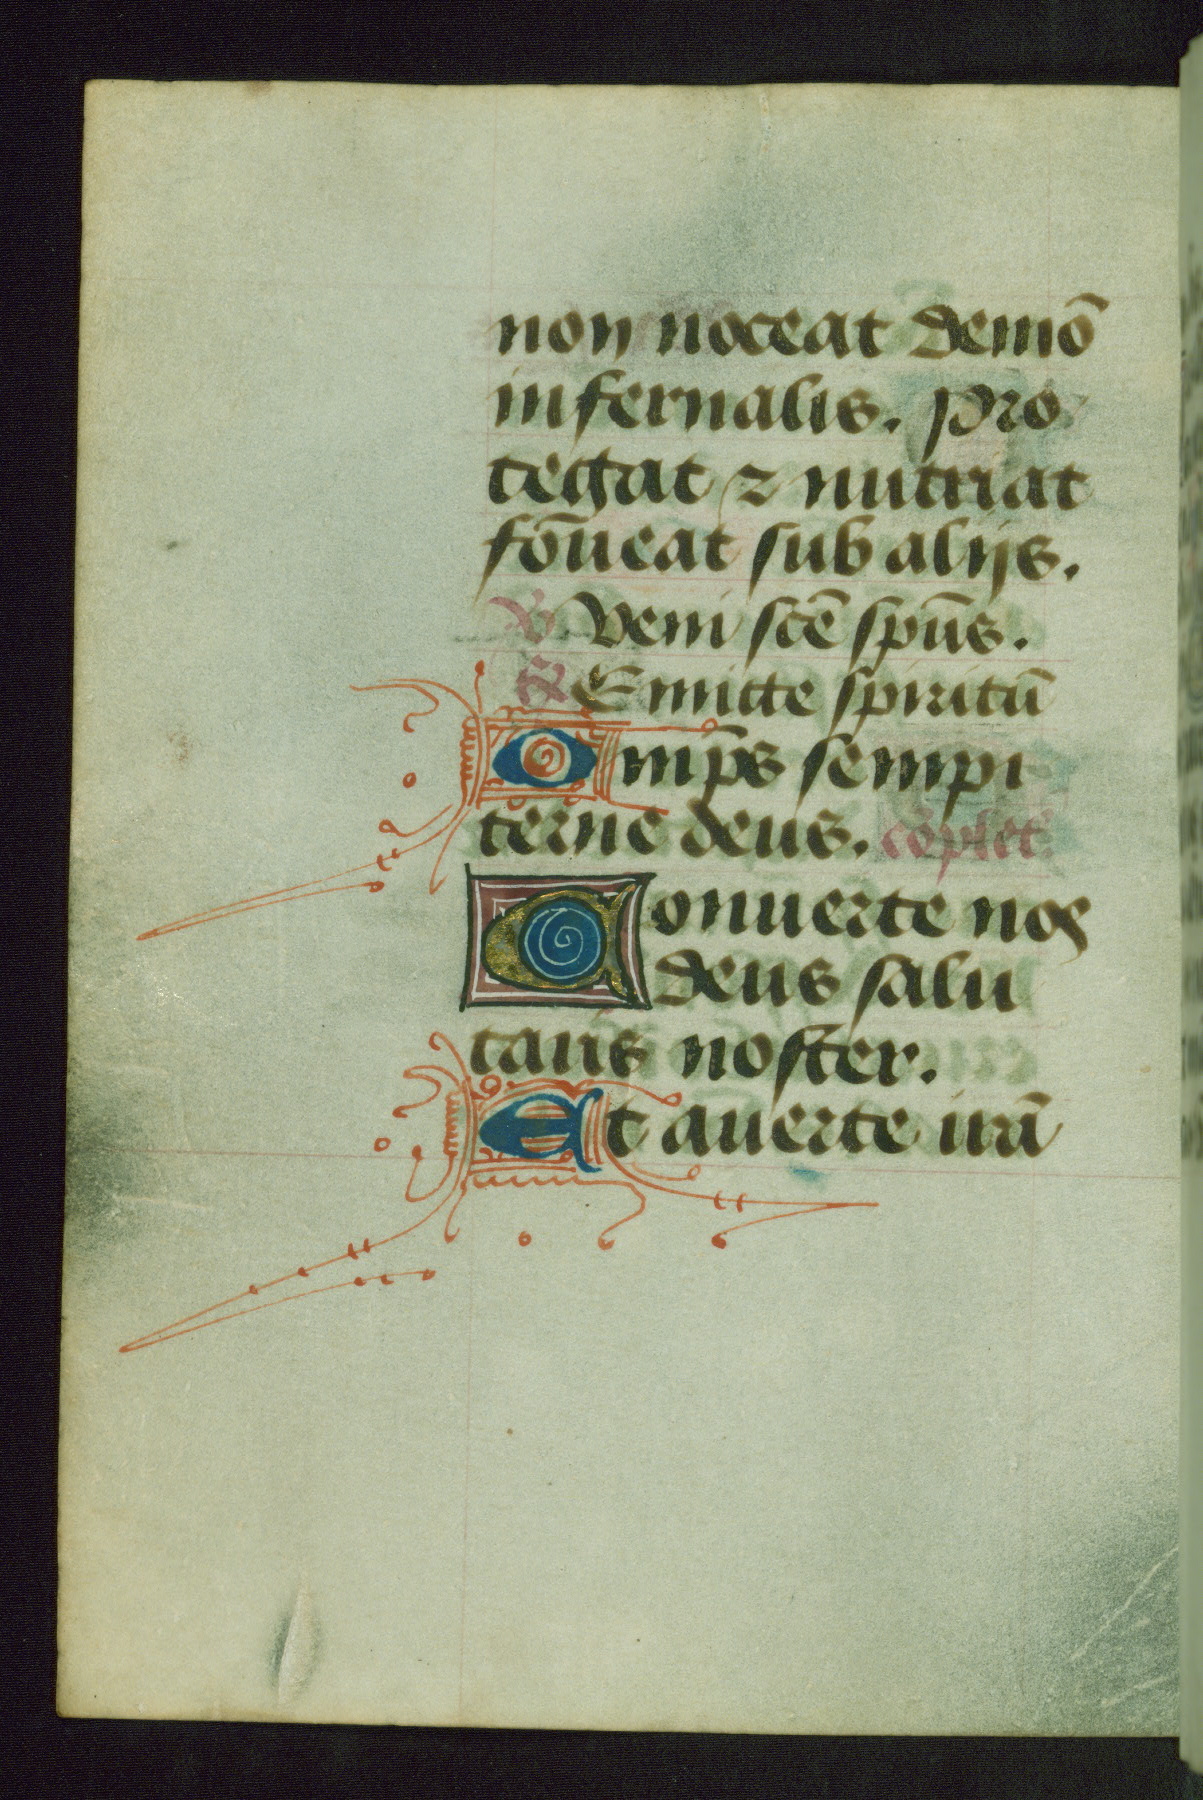 non noceat demō
infernalis. pro
tegat ⁊ nutriat
fōueat sub alijs.
℣ Veni scē spūs.
℟ Emitte spiritū
Omp̄s sempi
terne deus. cōplet'.
Conuerte nos
deus salu
taris noster.
Et auerte irā